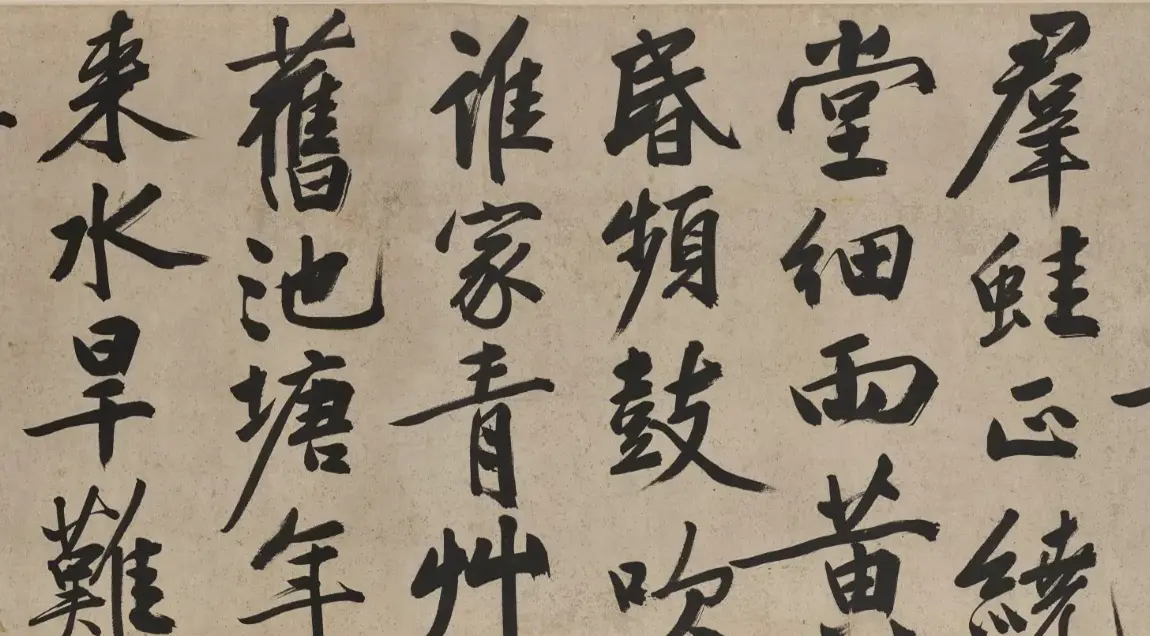 羣蛙正繞
堂細雨黄
昬頻鼓吹
誰家青艸
舊池塘年
来水旱難